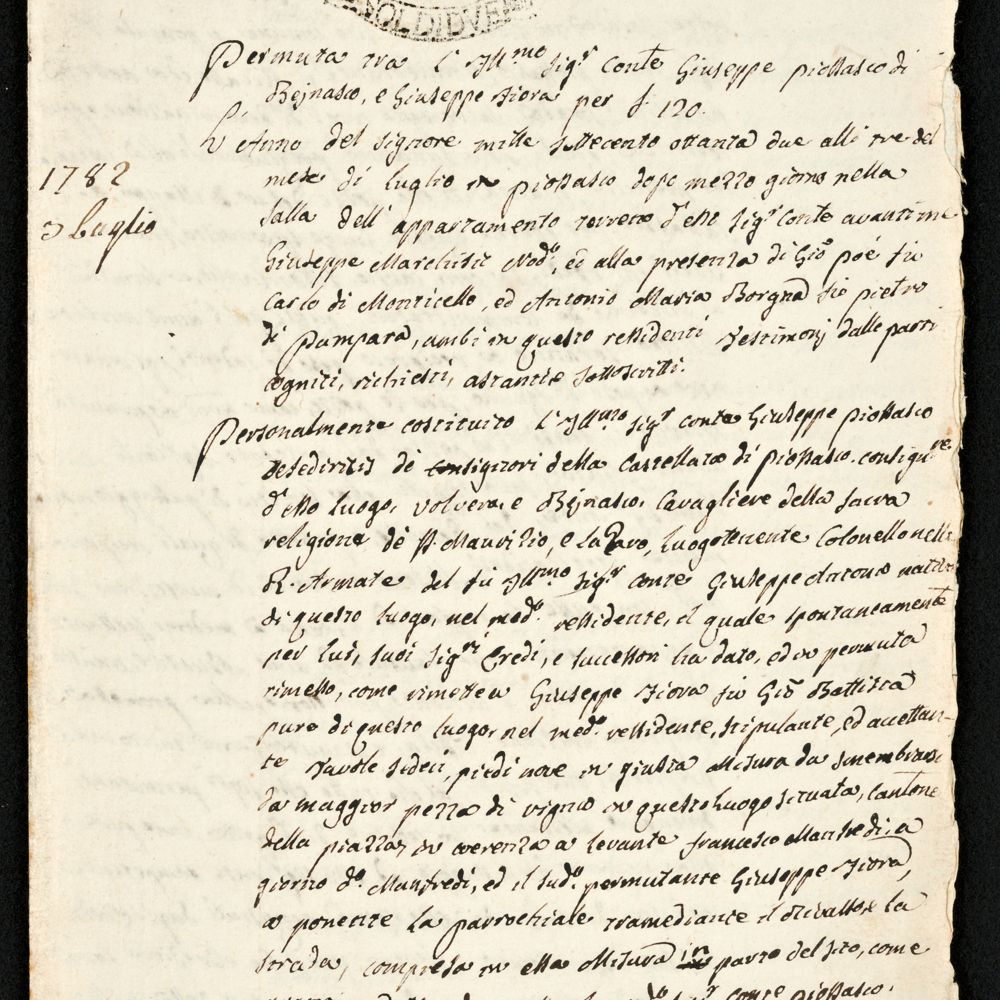 SOLDI DVE
Permuta tra l'Ill.mo Sig.r Conte Giuseppe Piossasco di
Bejnasco, e Giuseppe Fiora per £. 120.
L'Anno del Signore mille settecento ottanta due alli tre del
1782
3 Luglio
mese di Luglio in Piossasco dopo mezzo giorno nella
Salla dell'appartamento terreno d'esso Sig.r Conte avanti me
Giuseppe Marchisii Nod.o, ed alla presenza di Gio. Poé fu
Carlo di Monticello, ed Antonio Maria Borgna fu Pietro
di Pamparà, ambi in questo residenti Testimonj dalle parti
cogniti, richiesti, astanti e sottoscritti.
Personalmente costituito l'Ill.mo Sig.r Conte Giuseppe Piossasco
de Signori della Castellata di Piossasco. consig.re
d'esso luogo, Volvera, e Bejnasco, Cavagliere della Sacra
religione de S. Maurizio, e Lazaro, Luogotenente Colonello nelle
R. Armate del fu Ill.mo Sig.r Conte Giuseppe Antonio nattivo
di questo luogo, nel med.o residente, il quale spontaneamente
per lui, suoi Sig.ri Eredi, e successori ha dato, ed in permuta
rimesso, come rimette a Giuseppe Fiora fu Gio. Battista
pure di questo luogo, nel med.o residente, stipulante, ed accettan-
te Tavole sedeci, piedi nove in giusta Misura da smembrarsi
da maggior pezza di vigna in questo luogo situata, Cantone
della piazza, in coerenza a levante Francesco Manfredi, a
giorno d.o Manfredi, ed il sud.o permutante Giuseppe Fiora,
a ponente la parrochiale tramediante il Rivasso e la
strada, compresa in essa Misura in parte del sito, come
Sig.r Conte Piossasco.